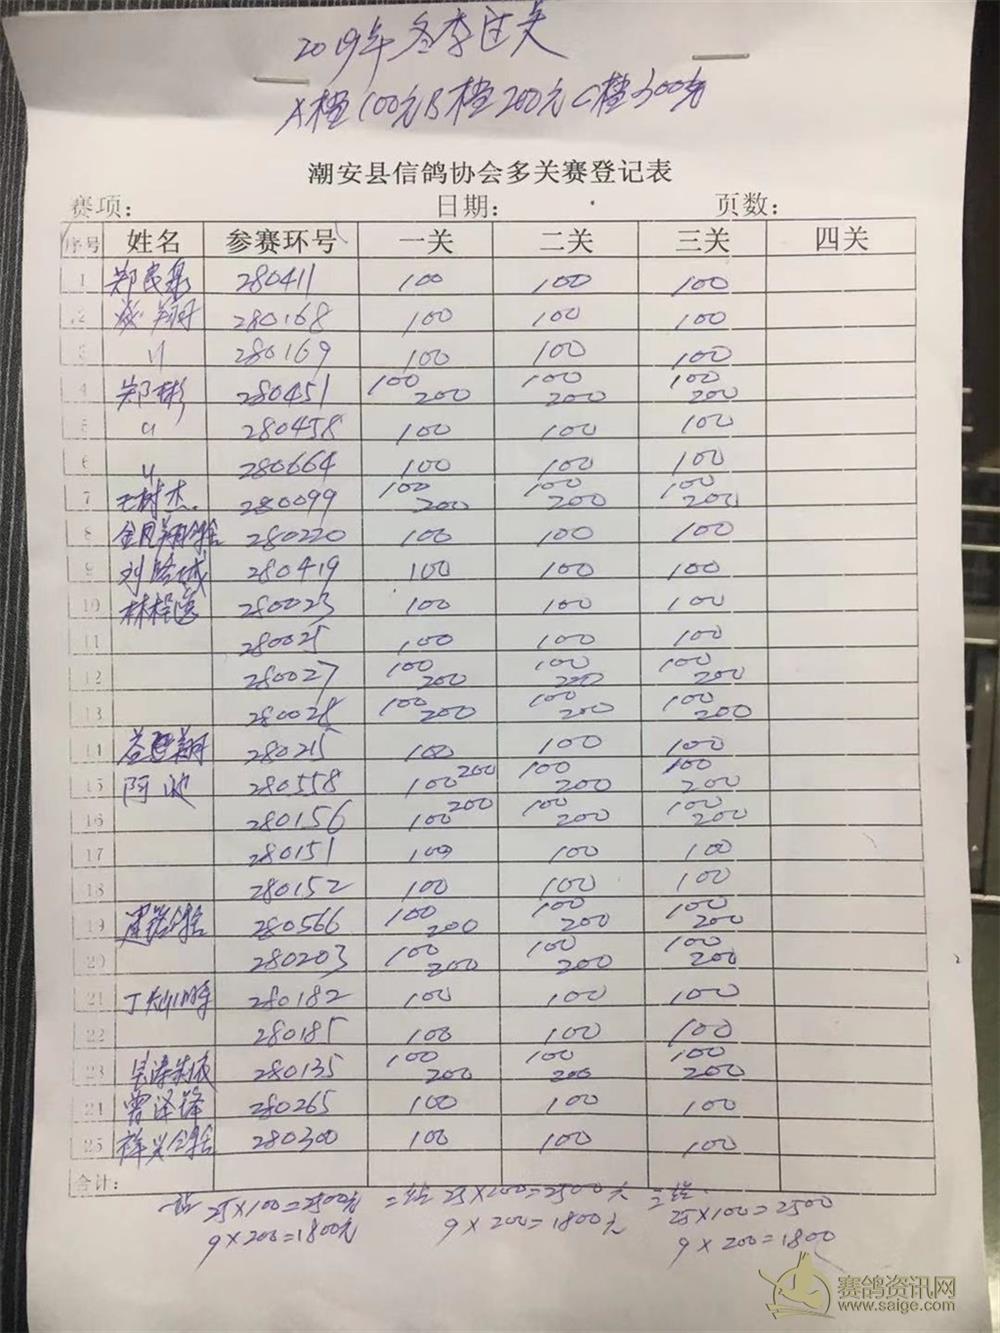 2019年冬季过关
A档100元B档200元C档300元
潮安县信鸽协会多关赛登记表
赛项： 日期： 页数：
序号 姓名 参赛环号 一关 二关 三关 四关
1 280411 100 100 100
2 翔 280168 100 100 100
3 〃 280169 100 100 100
4 郑彬 280451 100 200 100 200 100 200
5 〃 280458 100 100 100
6 〃 280664 100 100 100
7 王树杰 280099 100 200 100 200 100 200
8 金凤翔鸽舍 280220 100 100 100
9 280419 100 100 100
10 280023 100 100 100
11 280025 100 100 100
12 280027 100 200 100 200 100 200
13 280028 100 200 100 200 100 200
14 280215 100 100 100
15 阿波 280558 100 200 100 200 100 200
16 280156 100 200 100 200 100 200
17 280151 100 100 100
18 280152 100 100 100
19 280566 100 200 100 200 100 200
20 280203 100 200 100 200 100 200
21 280182 100 100 100
22 280185 100 100 100
23 280135 100 200 100 200 100 200
24 曾泽锋 280265 100 100 100
25 祥兴鸽舍 280300 100 100 100
合计：
25×100=2500元 二 25×100=2500元 三
25×100=2500
9×200=1800元 9×200=1800元
9×200=1800
赛鸽资讯网
www.saige.com